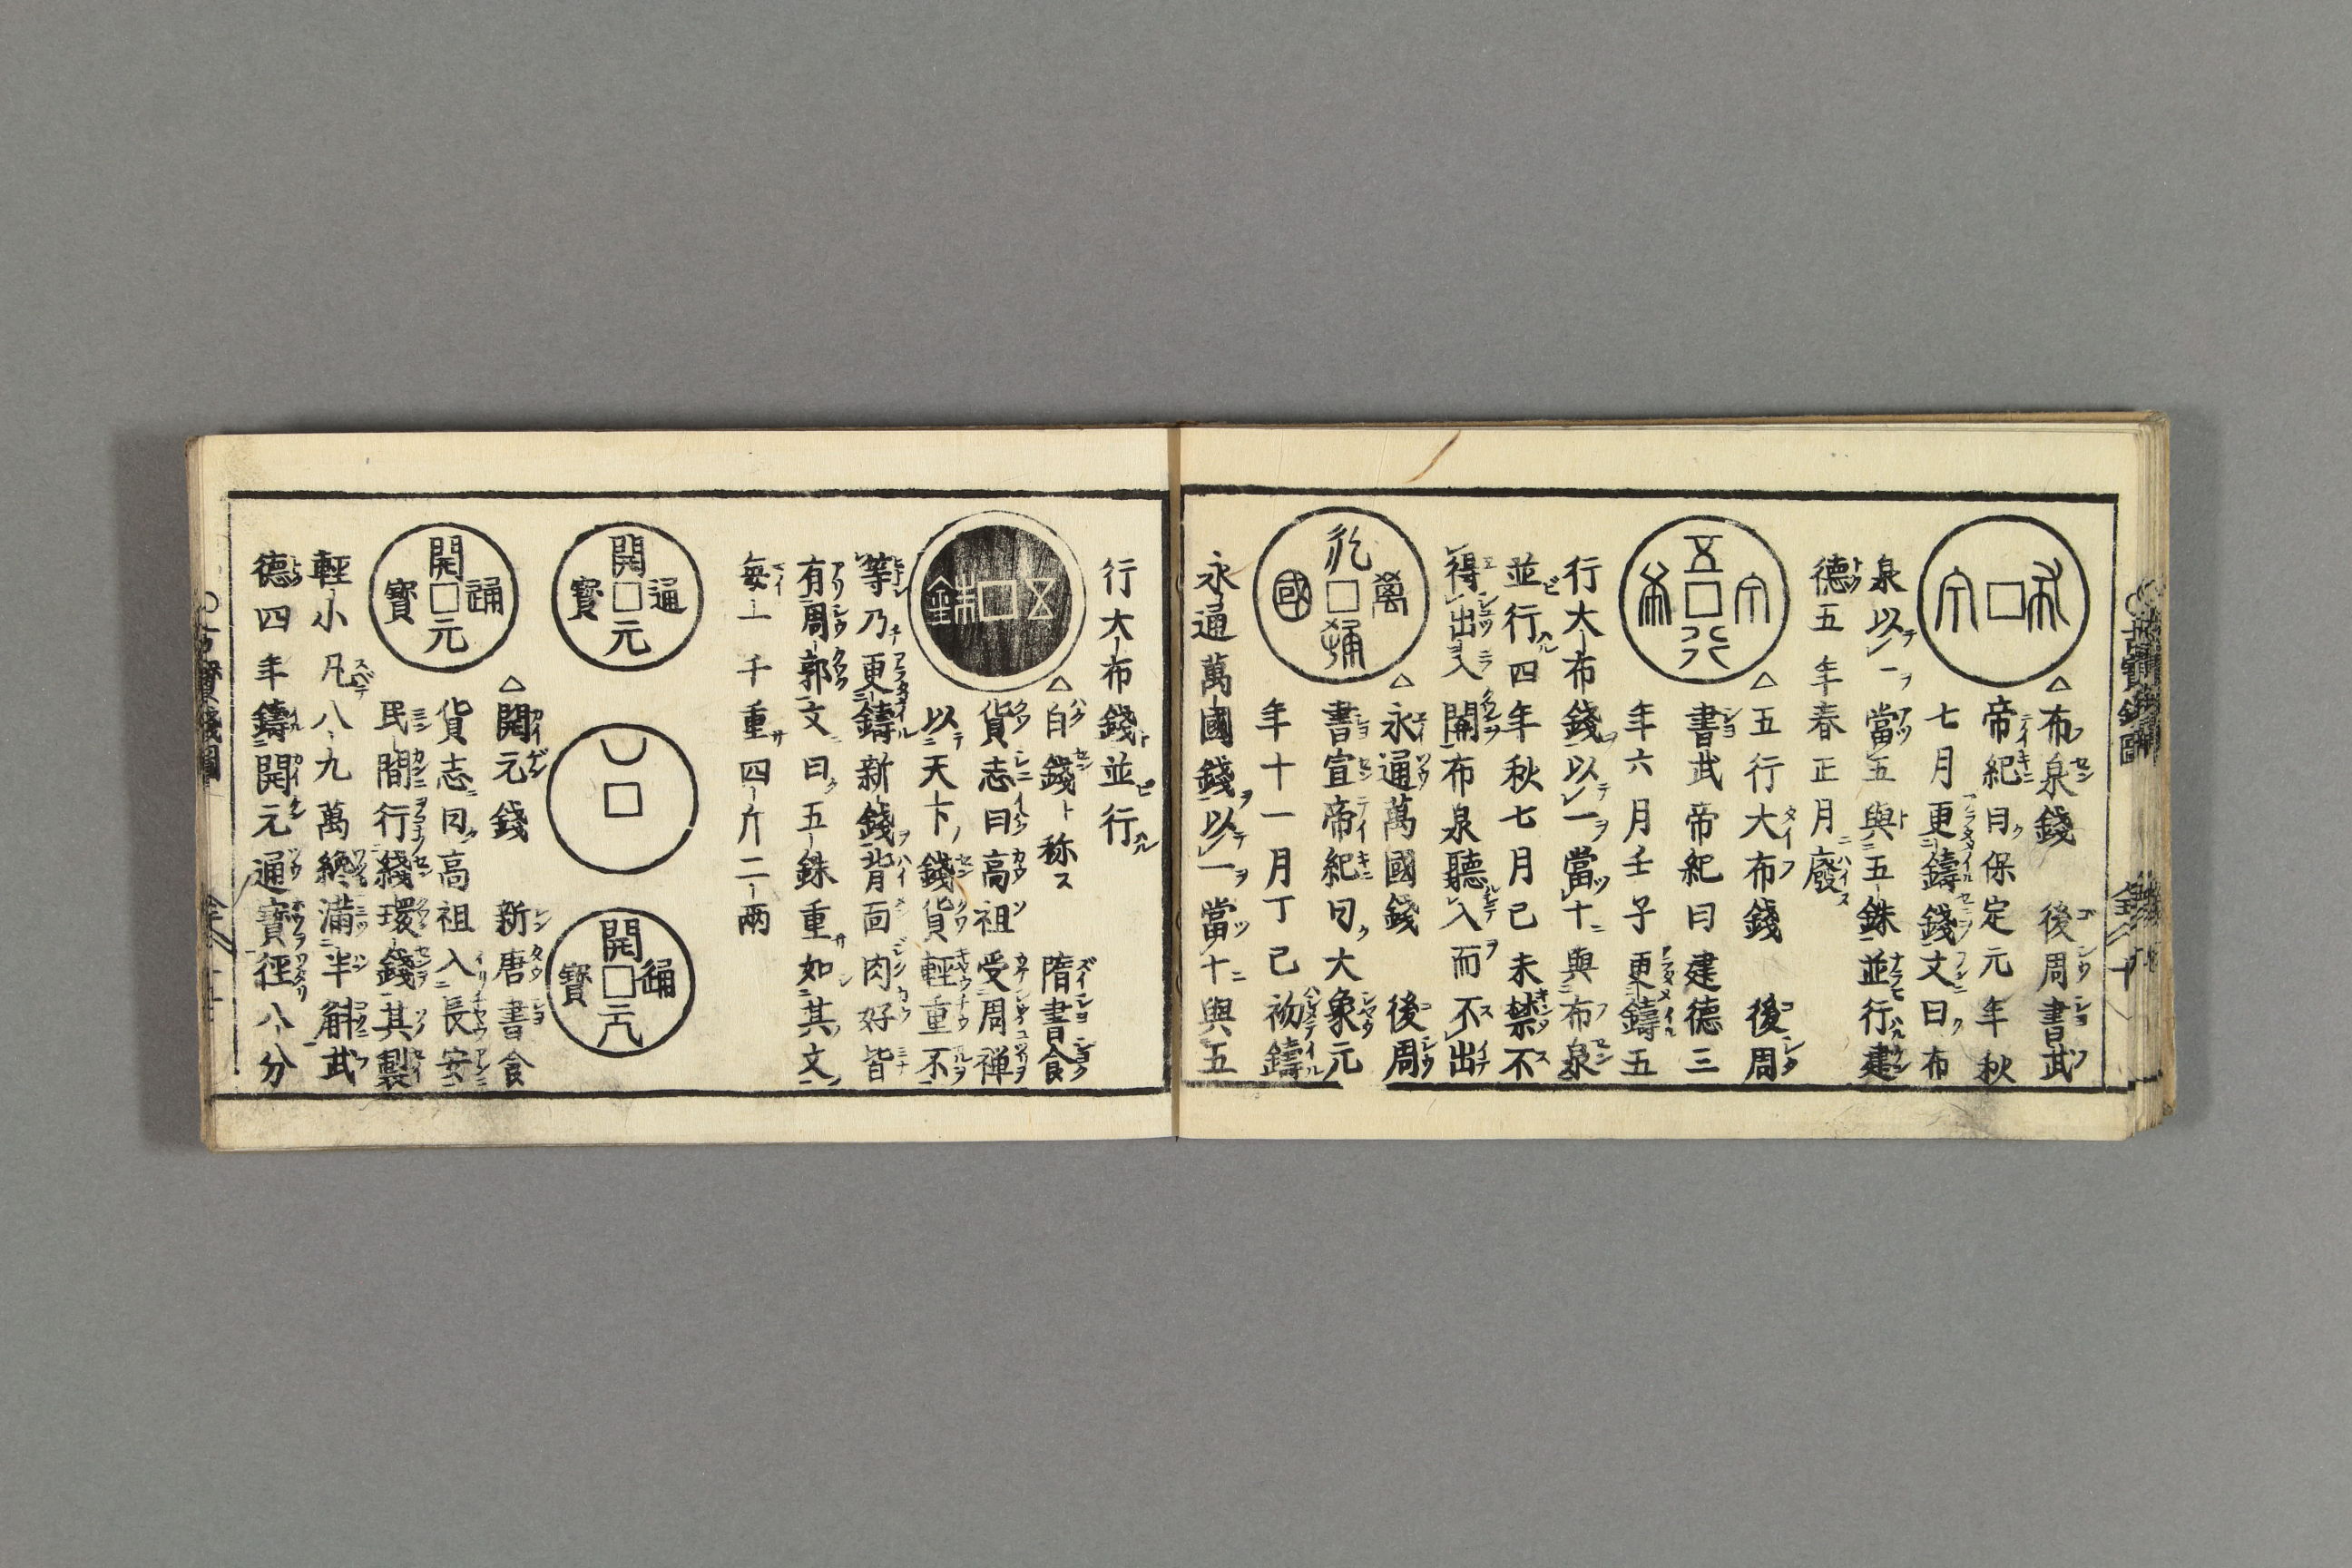 布泉
△布泉錢　後周書武
帝紀曰保定元年秋
七月更鑄錢文曰布
泉以一當五與五銖並行建
德五年春正月廢
五行大布
△五行大布錢　後周
書武帝紀曰建德三
年六月壬子更鑄五
行大布錢以一當十與布泉
並行四年秋七月己未禁不
得出入關布泉聽入而不出
永通萬國
△永通萬國錢　後周
書宣帝紀曰大象元
年十一月丁巳初鑄
永通萬國錢以一當十與五
行大布錢並行
五銖
△白錢ト称ス　隋書食
貨志曰高祖受周禅
以天下錢貨輕重不
等乃更鑄新錢背面肉好皆
有周郭文曰五銖重如其文
每一千重四斤二兩
開元通寳
開元通寳
△開元錢　新唐書食
貨志曰高祖入長安
民間行綫環錢其製
開元通寳
輕小凡八九萬纔滿半斛武
德四年鑄開元通寳徑八分